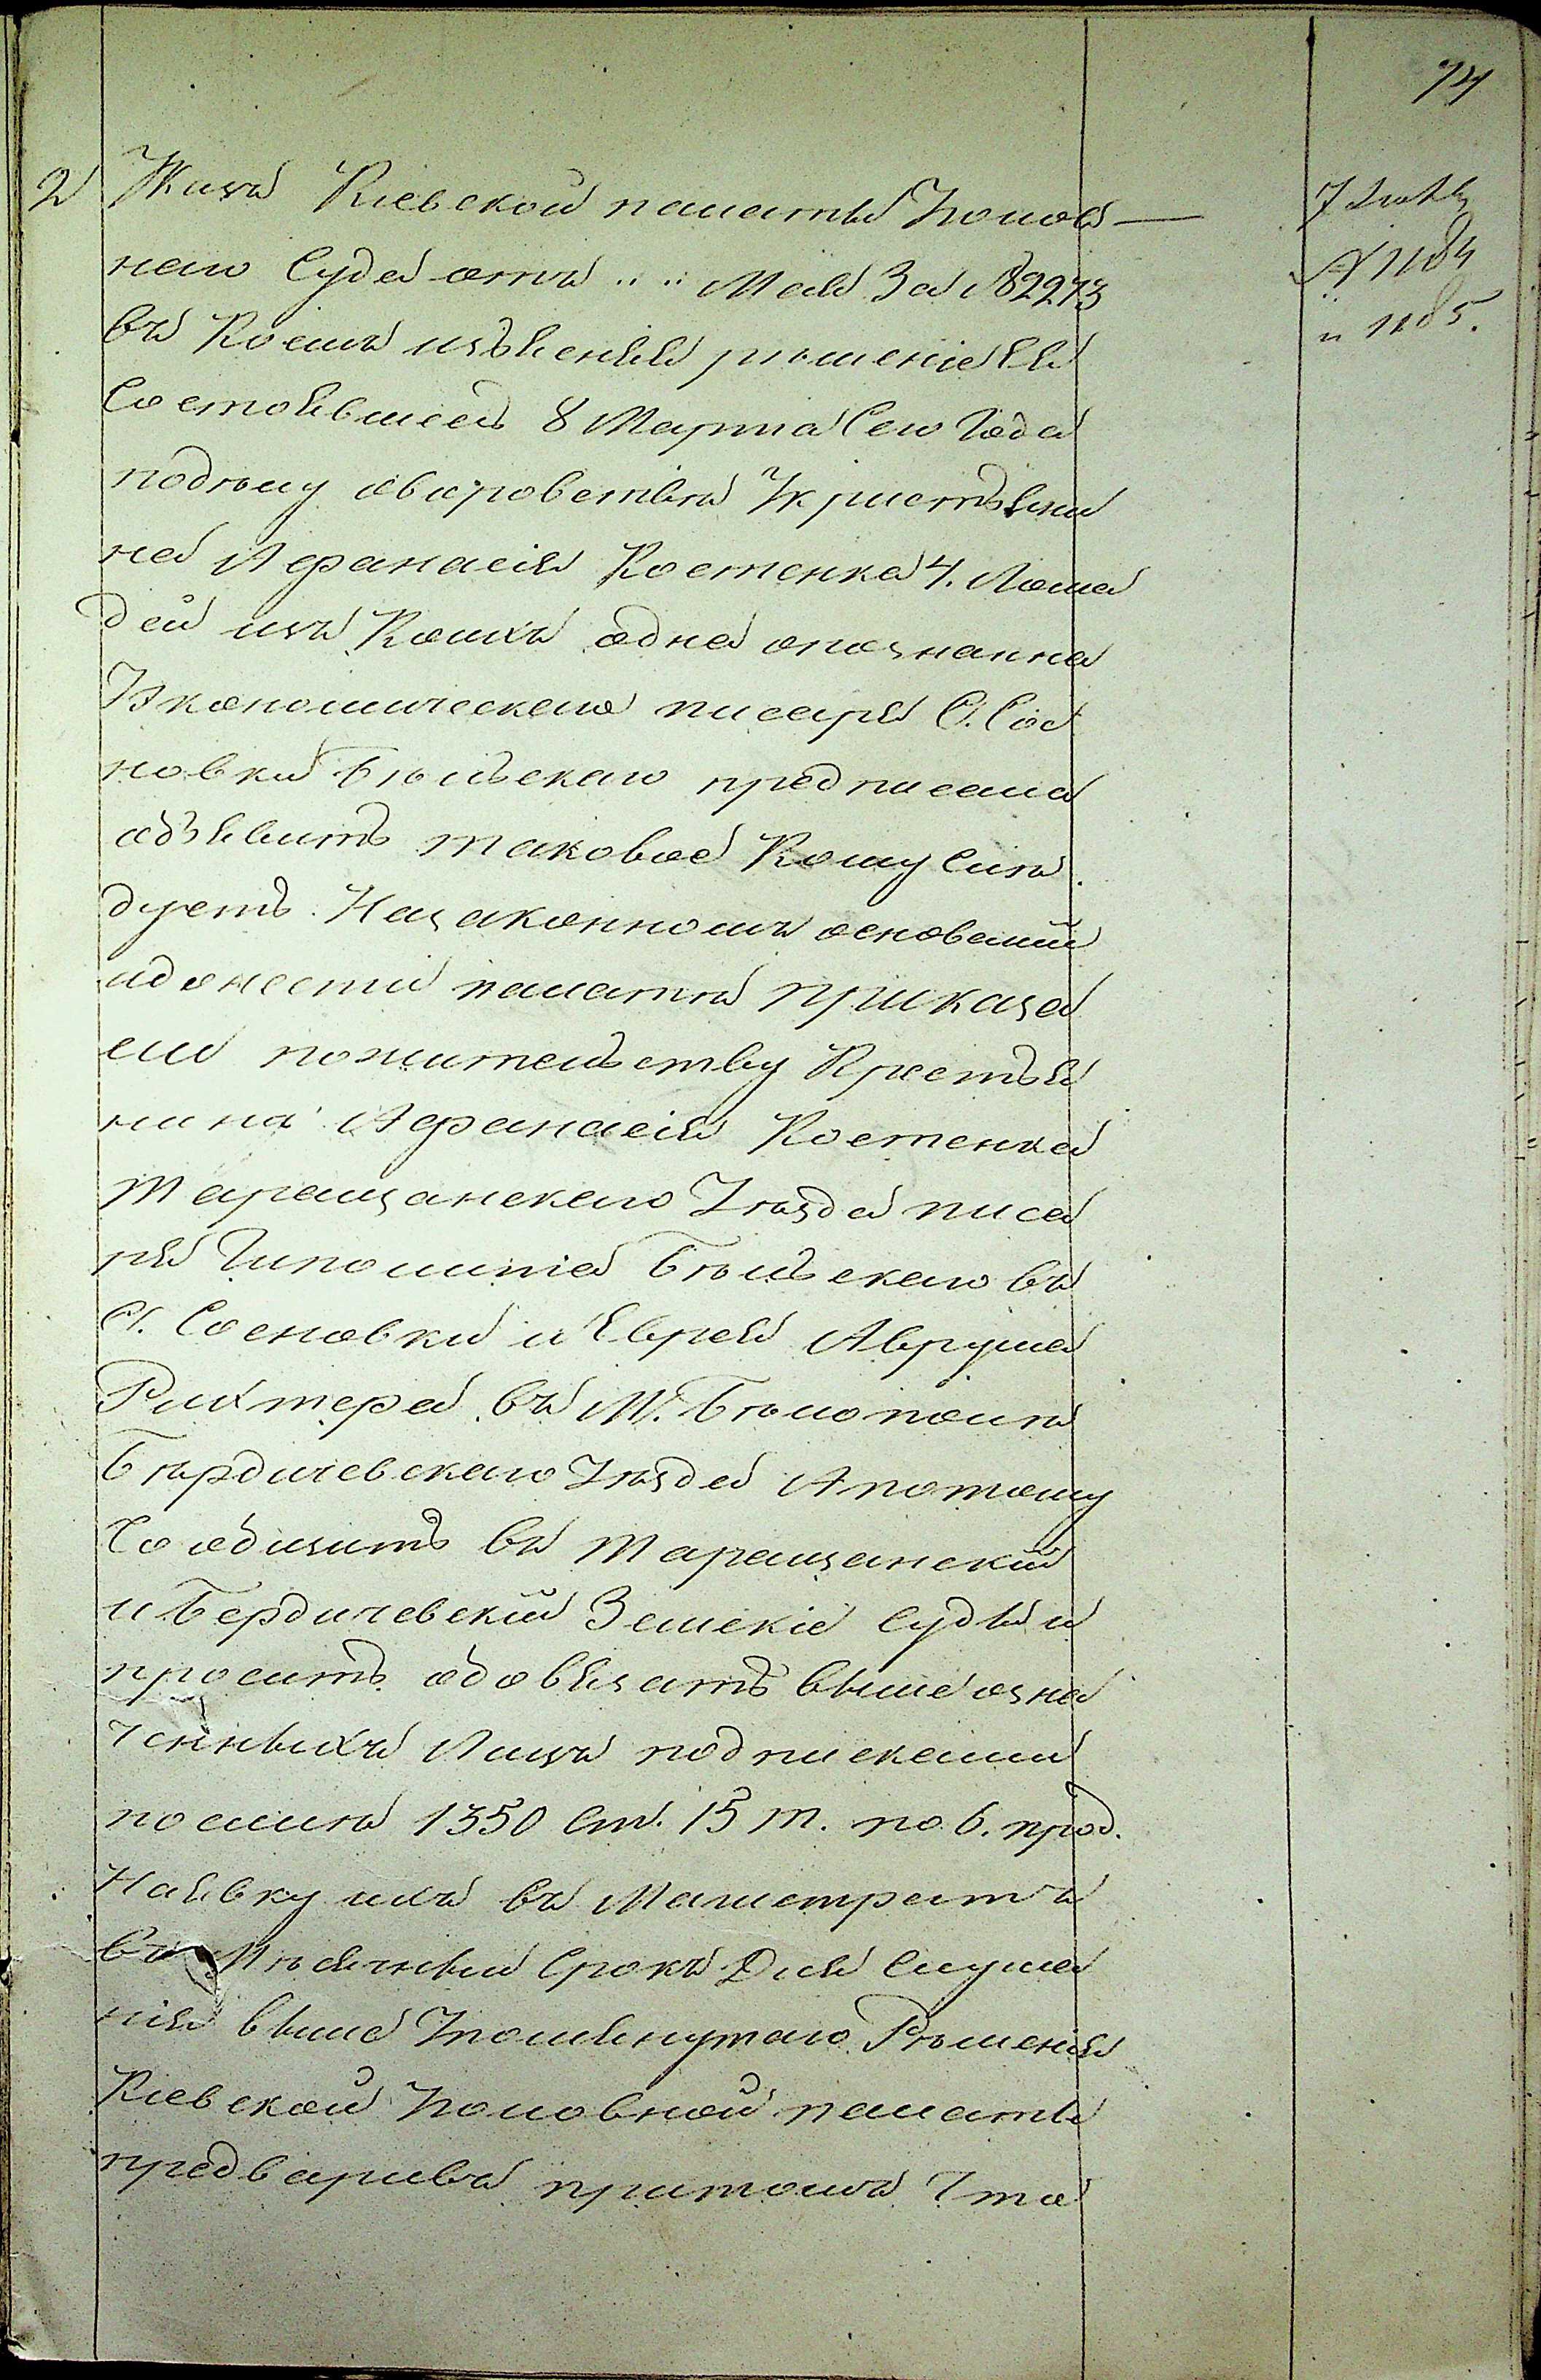 74
2 Указъ Кіевской палаты Уголов
наго Суда отъ „ „ Мая За №2273
7 Іюля
№ 1184
и 1185.
въ Коемъ изъясняя рѣшеніе Ея
Состоявшееся 8 Марта Сего Года
подѣлу обкровствѣ Укрестьяни
на Афанасія Костенка 4. Лоша
дей изъ Коихъ одна опознанна
Уэкономическаго писаря С. Сос
новки Бѣльскаго предписала
объявить таковое Кому Слѣ
дуетъ. Назаконномъ основаніи
идонести палатѣ приказа
ли пожительству Крестья
нина Афанасія Костенка
Таращанскаго Уѣзда писа
ря Ипполита Бѣльскаго въ
С. Сосновки и Еврея Аврума
Рихтера въ М. Бѣлополѣ
Бѣрдичевскаго Уѣзда Апотому
Сообщить въ Таращанскій
и Бердичевскій Земскіе Суды и
просить обовязать выше озна
ченныхъ Лицъ подписками
посилѣ 1350 Ст. 15 Т. по 6. прод.
Наявку ихъ въ Магистратъ
въ Мѣсячный Срокъ Для Слуша
нія выше Упомянутаго Рѣшенія
Кіевской Уголовной палаты
предваривъ притомъ Что